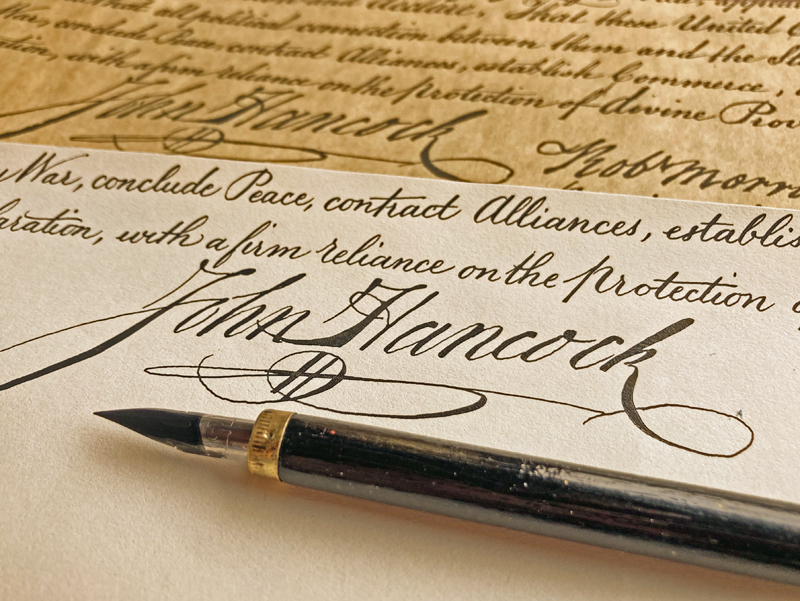 that all political connection between them and the Sta
War, conclude Peace, contract Alliances, establish Commerce,
tion, with a firm reliance on the protection of divine Prov
John Hancock
Robt Morri
War, conclude Peace, contract Alliances, establis
laration, with a firm reliance on the protection
John Hancock